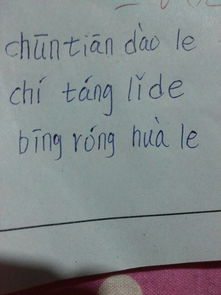 chūntiān dào le
chí táng lǐde
bīng róng huà le